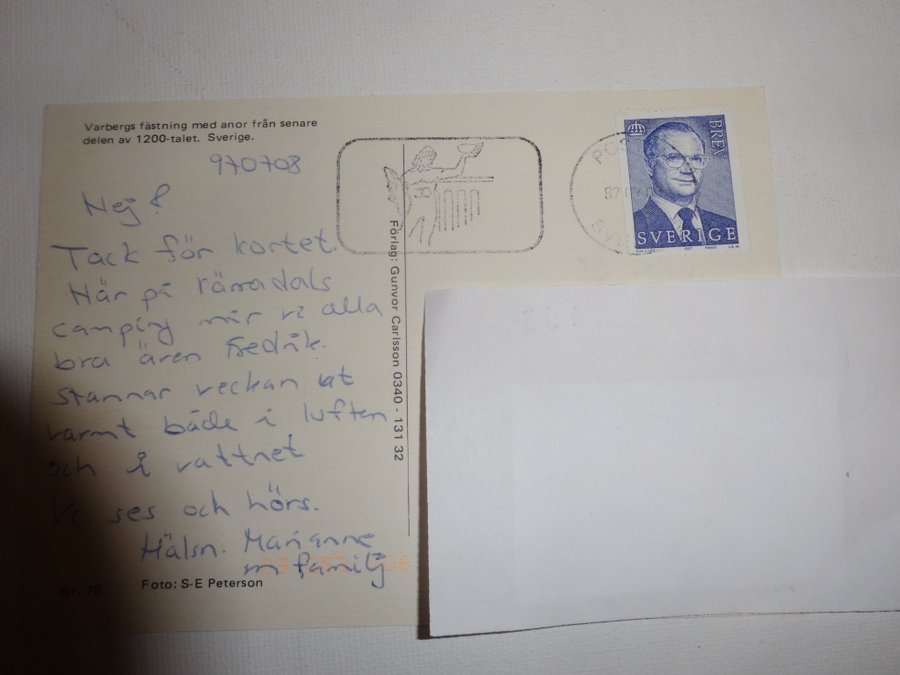 Varbergs fästning med anor från senare
delen av 1200-talet. Sverige.
970708
Hej!
Tack för kortet.
Här på Rärradals
camping mår vi alla
bra även Fredrik.
Stannar veckan ut
varmt både i luften
och i vattnet
Vi ses och hörs.
Hälsn. Marianne
m familj
Nr. 78
Foto: S-E Peterson
Förlag: Gunvor Carlsson 0340 - 131 32
BREV
SVERIGE
1997